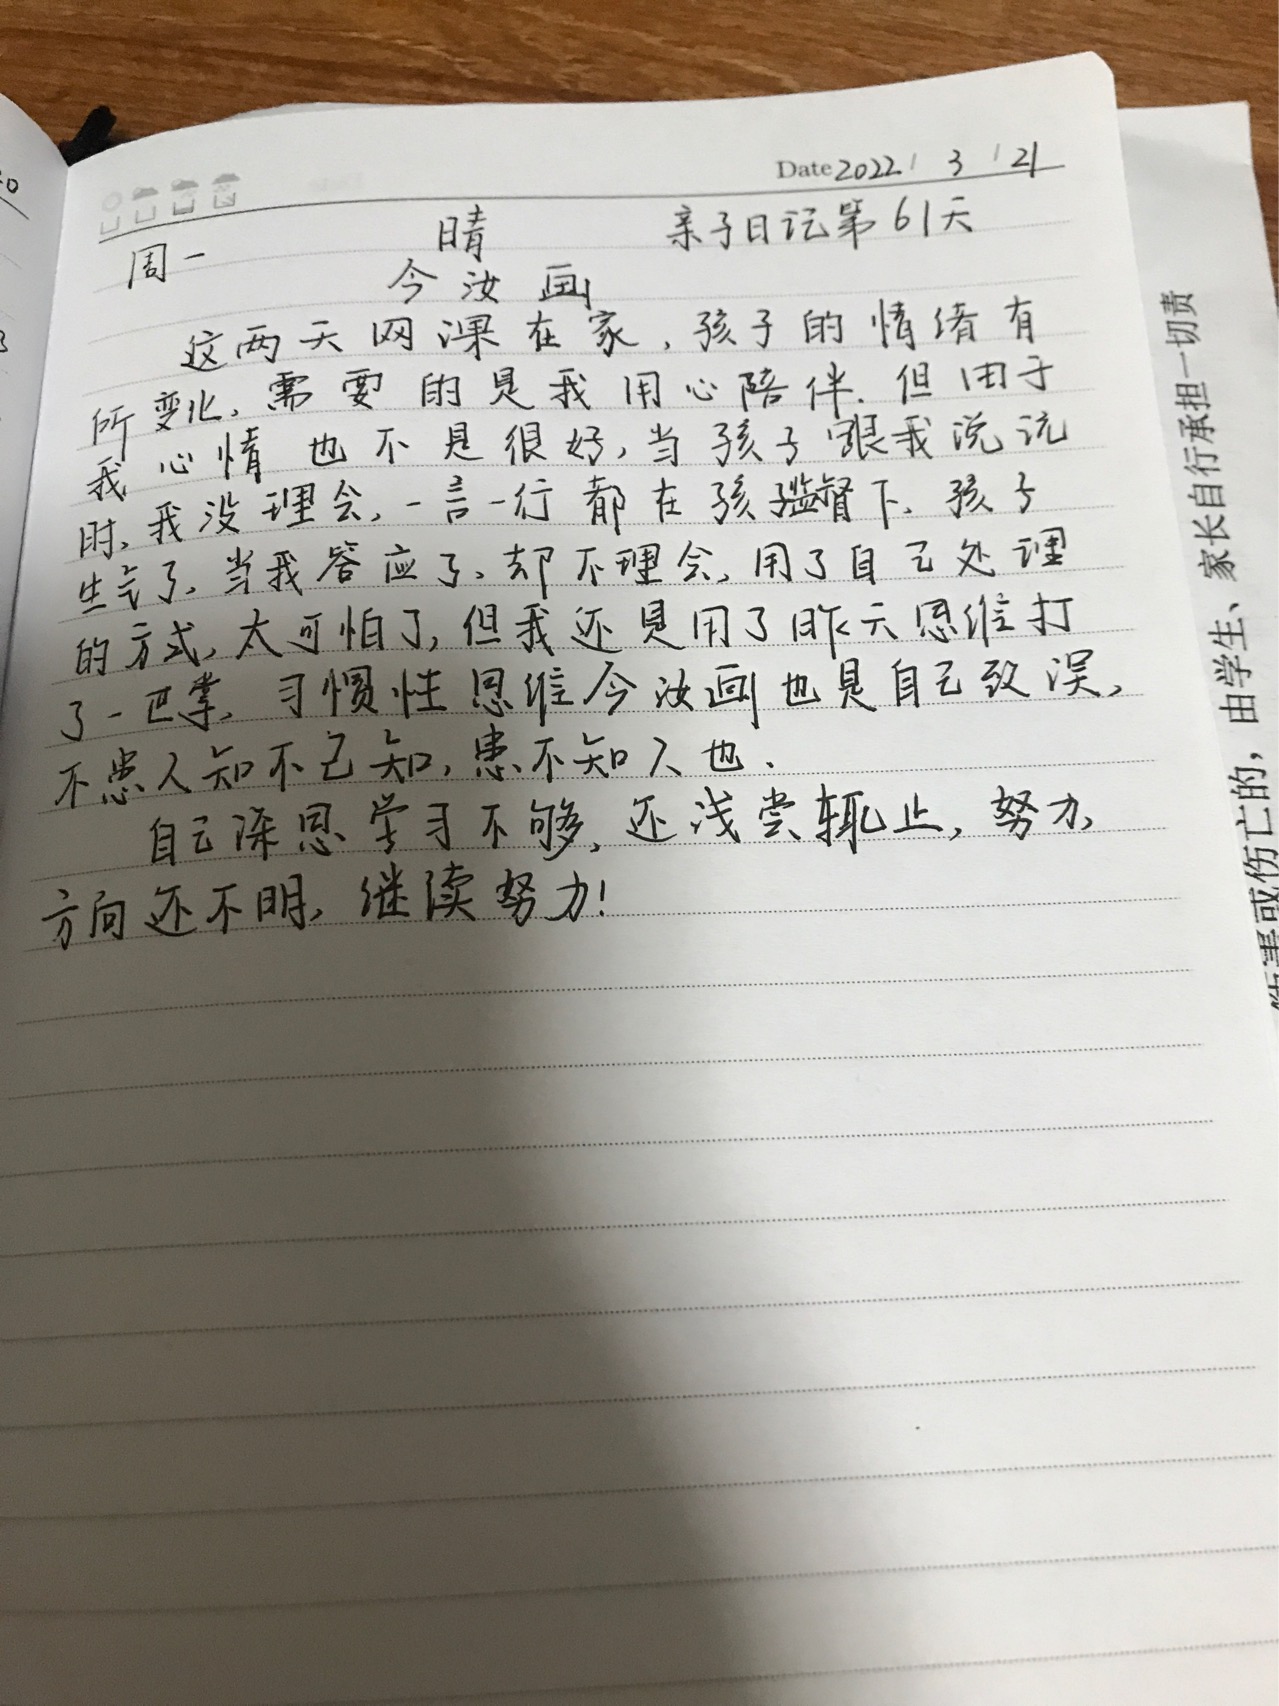 Date 2022 / 3 / 21
周一 晴 亲子日记第61天
今汝画
这两天网课在家,孩子的情绪有
所变化,需要的是我用心陪伴.但由于
我心情也不是很好,当孩子跟我说说
时,我没理会,一言一行都在孩子监督下.孩子
生气了,当我答应了,却不理会,用了自己处理
的方式,太可怕了,但我还是用了昨天思维打
了一巴掌,习惯性思维今汝画也是自己致误,
不患人知不己知,患不知人也.
自己深思学习不够,还浅尝辄止,努力
方向还不明,继续努力!
由学生、家长自行承担一切责
或伤亡的,